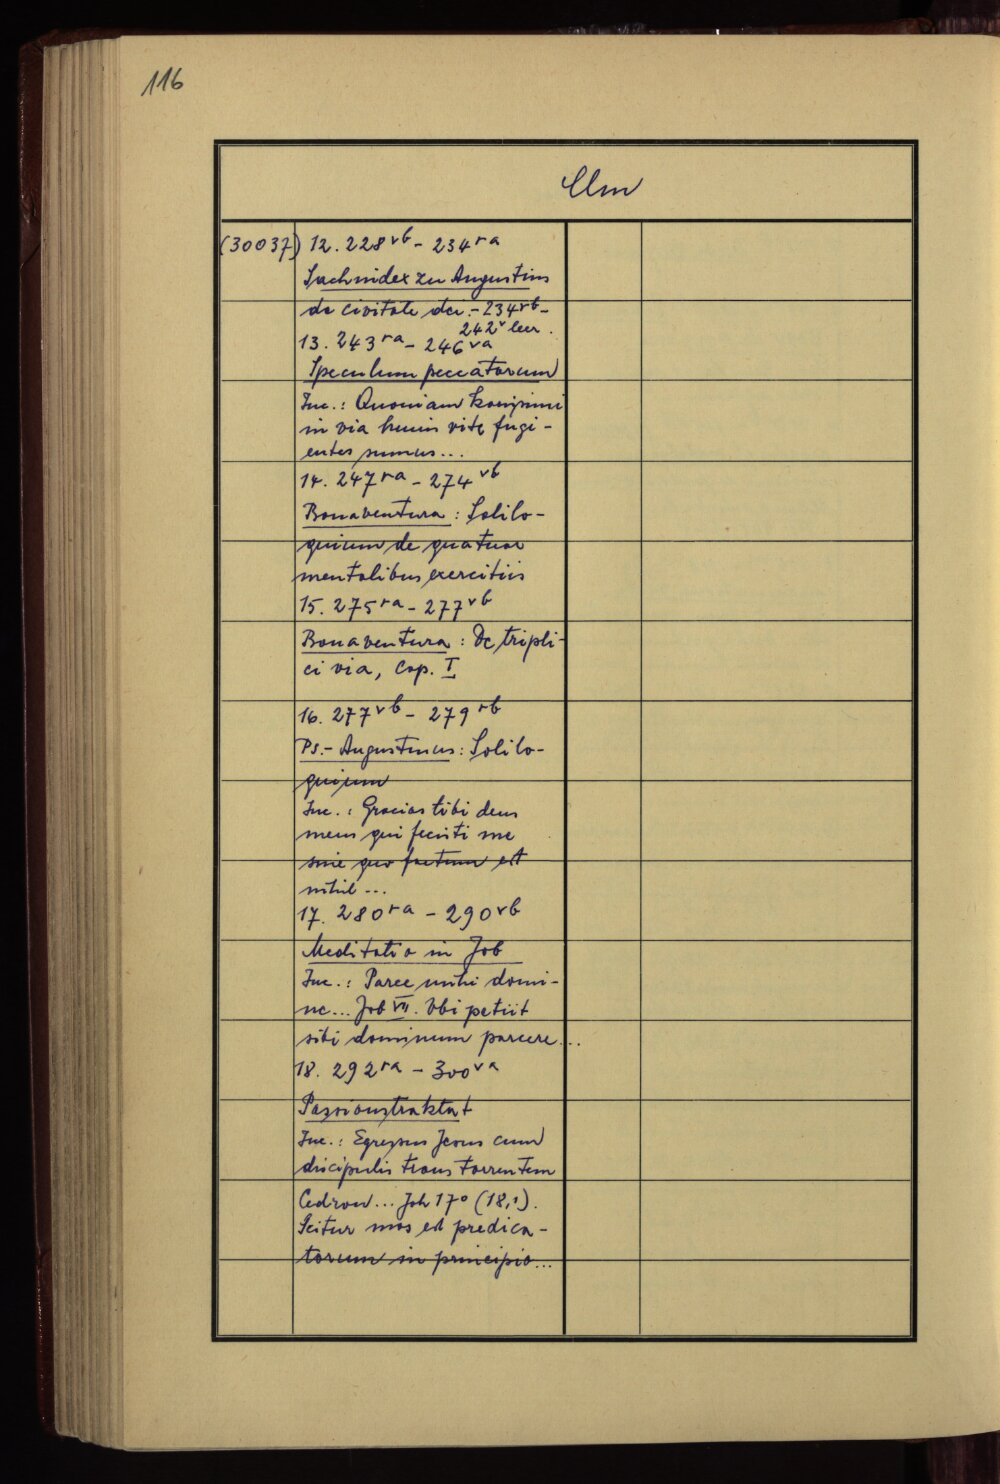 116
Clm
(30037) 12. 228vb - 234ra
Sachindex zu Augustins
de civitate dei. - 234rb -
242v leer.
13. 243ra - 246va
Speculum peccatorum
Inc.: Quoniam karissimi
in via huius vite fugi-
entes sumus...
14. 247ra - 274vb
Bonaventura: Solilo-
quium de quatuor
mentalibus exercitiis
15. 275ra - 277vb
Bonaventura: De tripli-
ci via, Cap. I
16. 277vb - 279rb
Ps.- Augustinus: Solilo-
quium
Inc.: Gracias tibi deus
meus qui fecisti me
sine quo factum est
nihil...
17. 280ra - 290vb
Meditatio in Job
Inc.: Parce mihi domi-
ne... Job VII. Ubi petiit
sibi dominum parcere...
18. 292ra - 300va
Passionstraktat
Inc.: Egressus Jesus cum
discipulis trans torrentem
Cedron... Joh 17o (18,1).
Scitur mos est predica-
torum in principio...